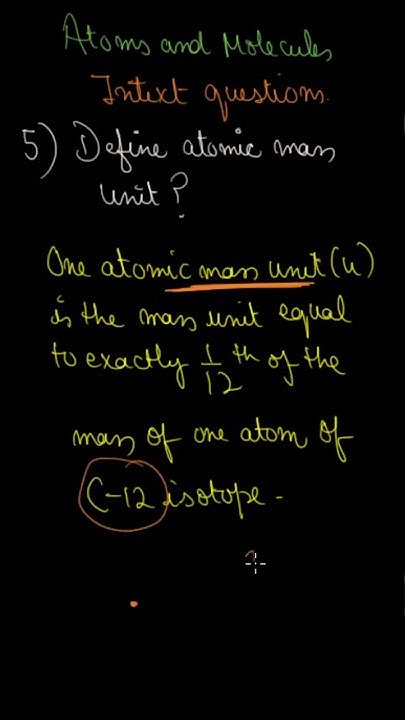 Atoms and Molecules
Intext questions.
5) Define atomic mass
unit?
One atomic mass unit (u)
is the mass unit equal
to exactly 1/12 th of the
mass of one atom of
C-12 isotope -